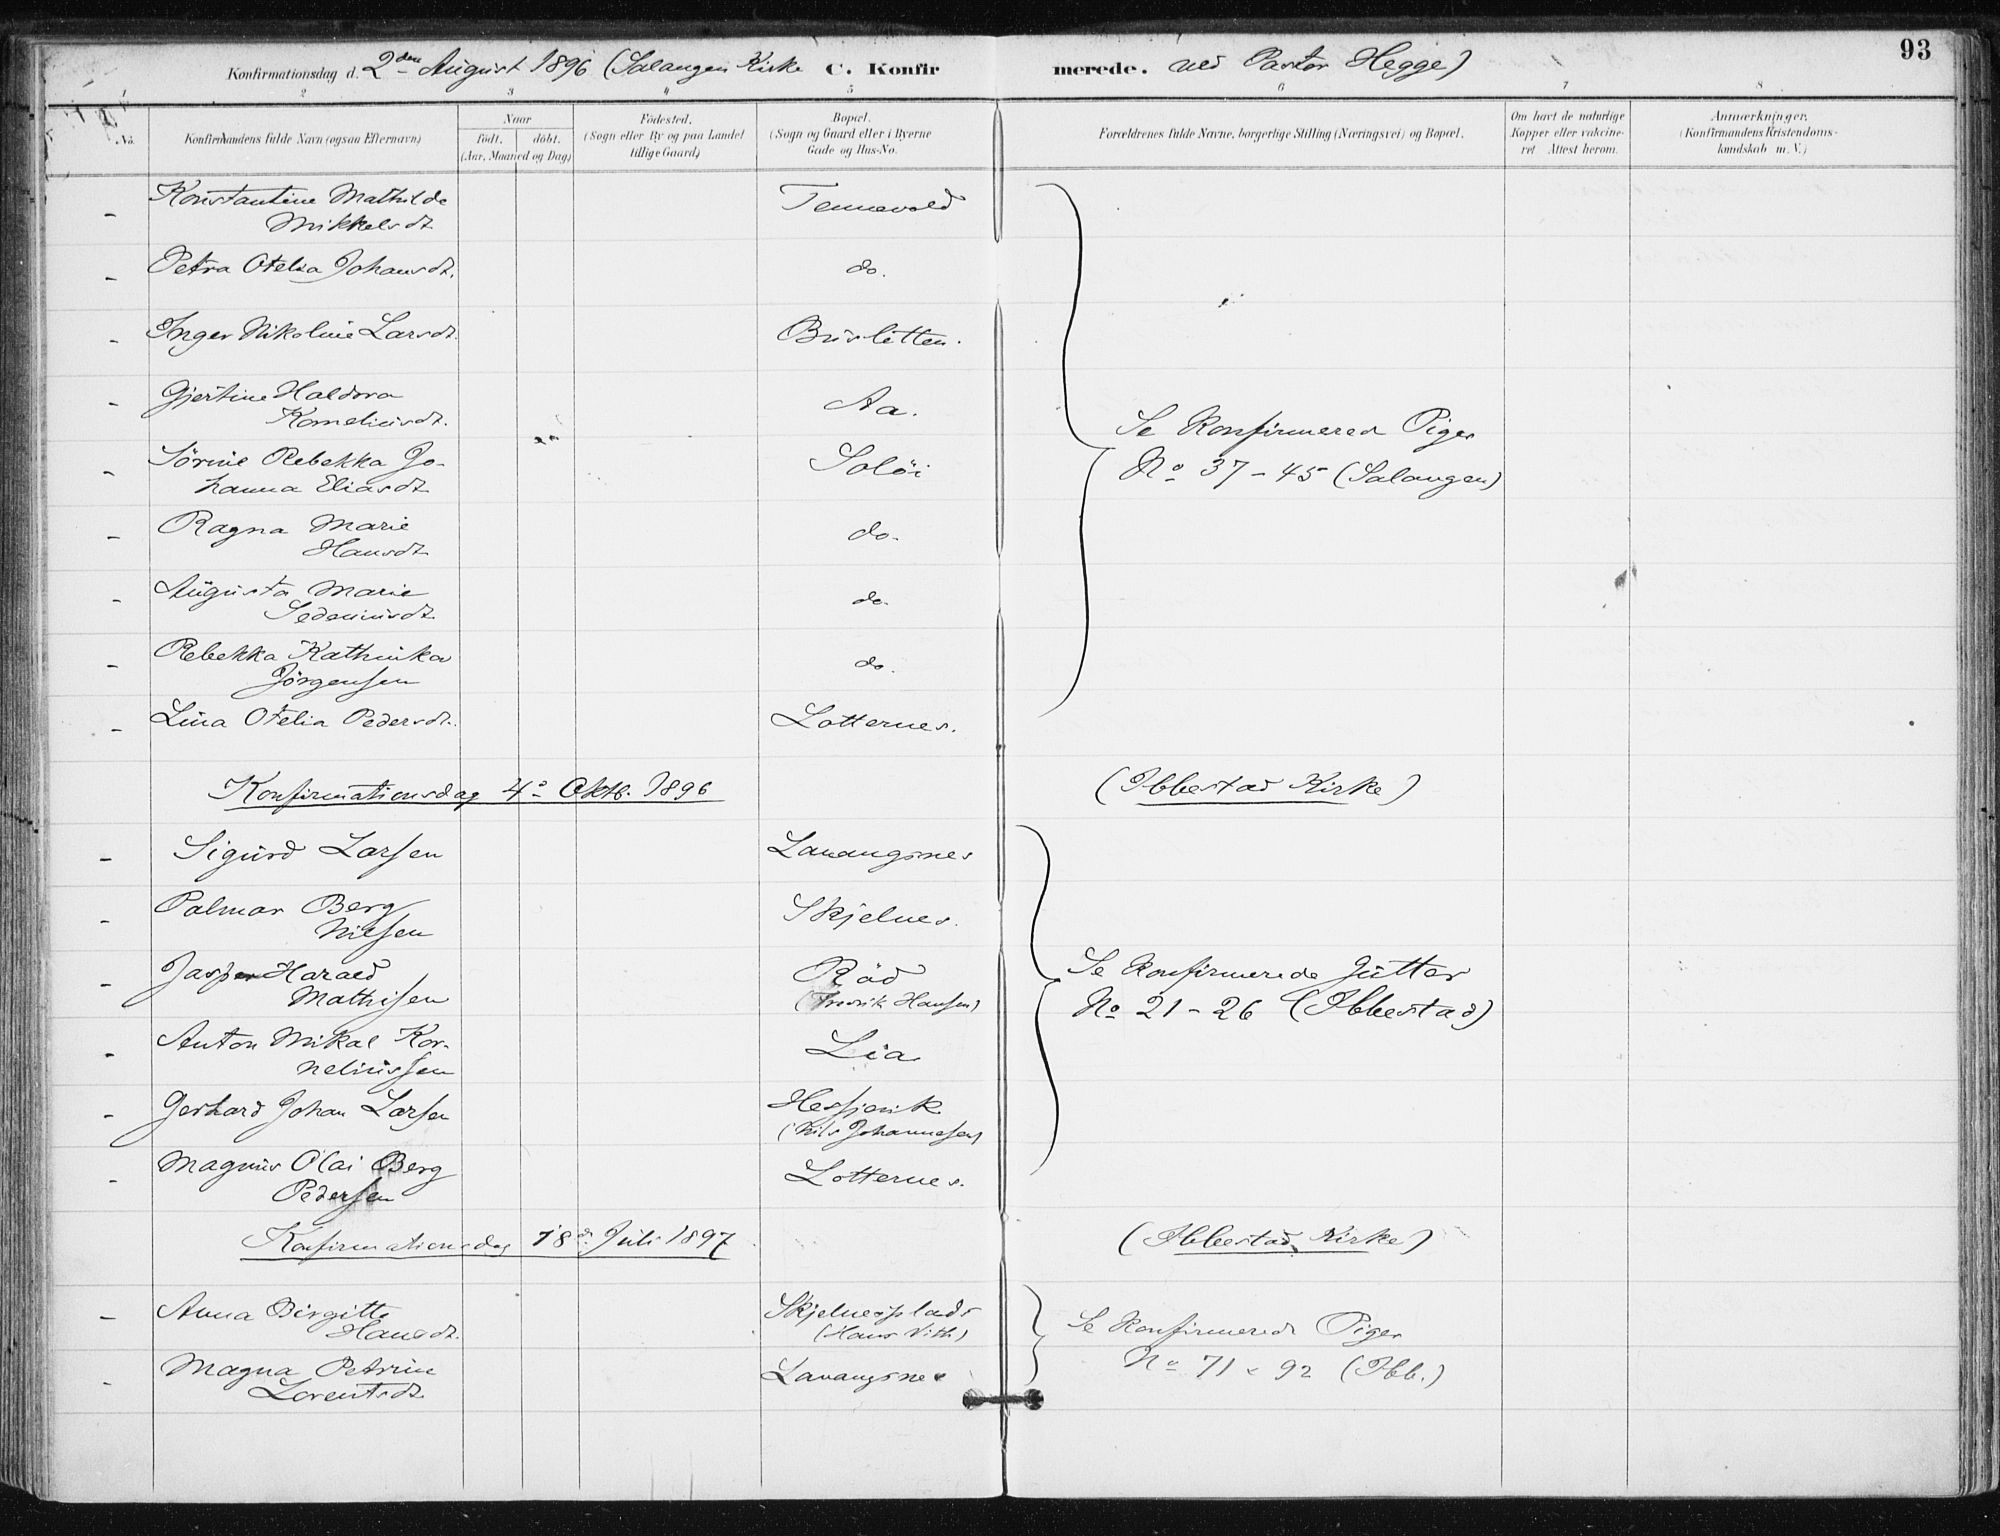 93
Konfirmationsdag d. 2den August 1896 (Salangen Kirke C. Konfirmerede. ved Pastor Hegge)
1 2 3 4 5 6 7 8
No.
Konfirmandens fulde Navn (ogsaa Efternavn)
Naar
født. døbt.
(Aar, Maaned og Dag)
Fødested.
(Sogn eller By og paa Landet
tillige Gaard)
Bopæl.
(Sogn og Gaard eller i Byerne
Gade og Hus-No.
Forældrenes fulde Navne, borgerlige Stilling (Næringsvei) og Bopæl.
Om havt de naturlige
Kopper eller vakcine-
ret Attest herom.
Anmærkninger.
(Konfirmandens Kristendoms-
kundskab m. V.)
- Konstantine Mathilde Tennevold
Mikkelsdt.
- Petra Otelia Johansdt. do.
- Inger Nikoline Larsdt. Busletten.
- Gjertine Haldora Aa.
Korneliusdt.
Se Konfirmerede Piger
- Sörine Rebekka Jo- Solöi
hanna Eliasdt.
No 37 - 45 (Salangen)
- Ragna Marie do.
Hansdt.
- Augusta Marie do.
Sedeniusdt.
- Rebekka Kathinka do.
Jörgensen
- Lina Otelia Pedersdt. Lotternes.
Konfirmationsdag 4de Oktb. 1896 (Ibbestad Kirke)
- Sigurd Larsen Lavangsnes
- Palmar Berg Skjelnes.
Nilsen
- Jasper Harald Röd
Mathisen (Fredrik Hansen)
Se Konfirmerede Gutter
No 21 - 26 (Ibbestad)
- Anton Mikal Kor- Lia
neliussen
- Gerhard Johan Larsen Hessjevik
(Nils Johannesen)
- Magnus Olai Berg Lotternes.
Pedersen
Konfirmationsdag 18d. Juli 1897 (Ibbestad Kirke)
- Anna Birgitte Skjelnesplads
Hansdt. (Hans Vith)
Se Konfirmerede Piger
- Magna Petrine Lavangsnes
Lorentsdt.
No 71 & 92 (Ibb.)